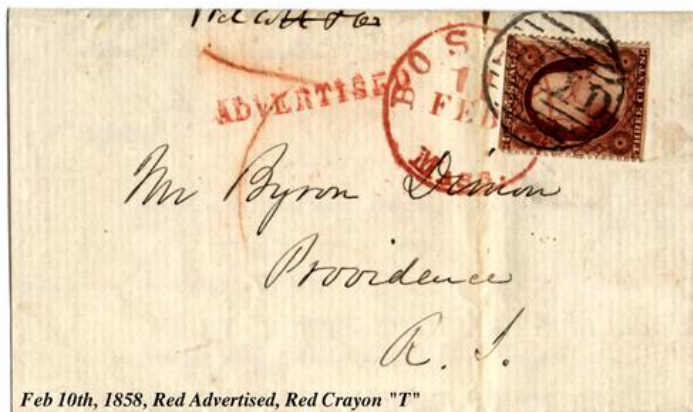 ADVERTISED
BOS
1
FEB
Mass.
THREE CENTS
Mr Byron Dimon
Providence
R. I.
Feb 10th, 1858, Red Advertised, Red Crayon "T"